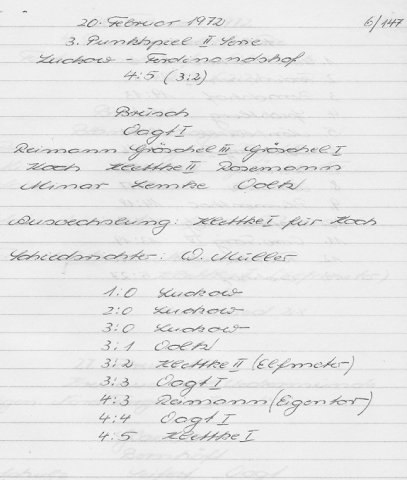 20. Februar 1972 6/147
3. Punktspiel II. Serie
Luckow - Ferdinandshof
4:5 (3:2)
Brüsch
Voigt I
Reimann Gröschel III Gröschel I
Koch Klettke II Rosemann
Minar Lemke Voltz
Auswechslung: Klettke I für Koch
Schiedsrichter: W. Müller
1:0 Luckow
2:0 Luckow
3:0 Luckow
3:1 Voltz
3:2 Klettke II (Elfmeter)
3:3 Voigt I
4:3 Reimann (Eigentor)
4:4 Voigt I
4:5 Klettke I